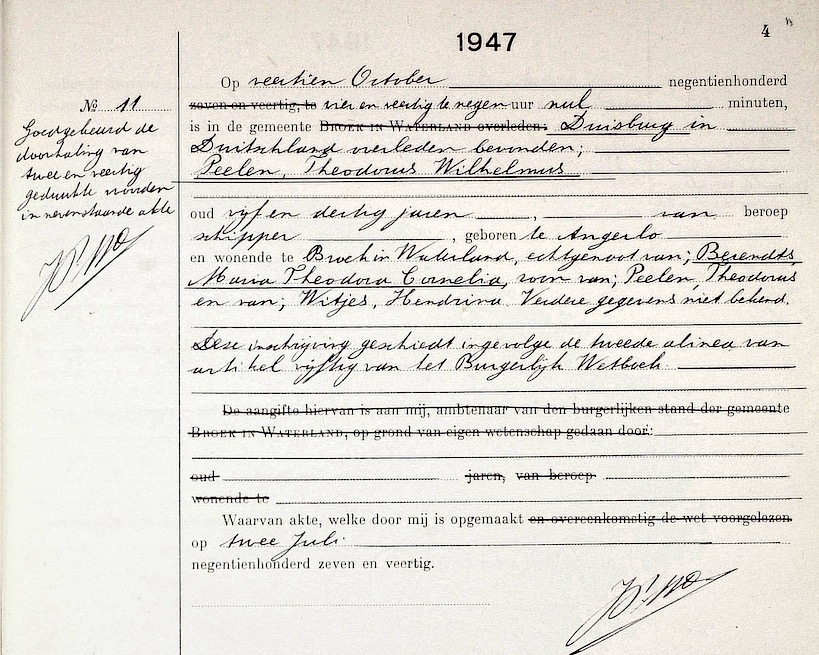 1947
4
Op veertien October negentienhonderd
zeven en veertig, te vier en veertig te negen uur nul minuten,
is in de gemeente Broek in Waterland overleden: Duisburg in
Duitschland overleden bevonden;
Peelen, Theodorus Wilhelmus
oud vijf en dertig jaren, van beroep
schipper, geboren te Angerlo
en wonende te Broek in Waterland, echtgenoot van; Berendts,
Maria Theodora Cornelia, zoon van; Peelen, Theodorus
en van; Witjes, Hendrina. Verdere gegevens niet bekend.
Deze inschrijving geschiedt ingevolge de tweede alinea van
artikel vijftig van het Burgerlijk Wetboek.
De aangifte hiervan is aan mij, ambtenaar van den burgerlijken stand der gemeente
Broek in Waterland, op grond van eigen wetenschap gedaan door:
oud jaren, van beroep
wonende te
Waarvan akte, welke door mij is opgemaakt en overeenkomstig de wet voorgelezen.
op twee Juli
negentienhonderd zeven en veertig.
No 11
Goedgekeurd de
doorhaling van
twee en veertig
gedrukte woorden
in nevenstaande akte